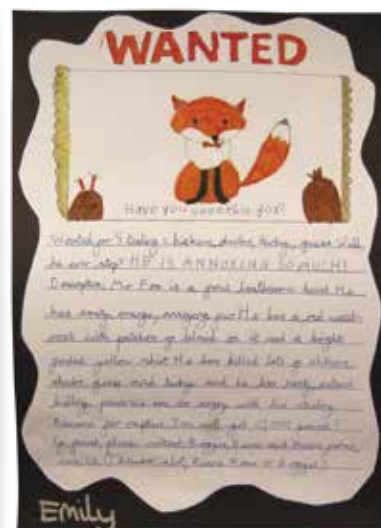 WANTED
Have you seen this fox?
Wanted for Stealing chickens, ducks, turkey, geese Will
he ever stop? HE IS ANNOYING SO MUCH!
Description Mr Fox is a great beast He
has orange, fur He has a red waist
coat with patches of blood on it and a bright
yellow shirt He has killed lots of chickens
ducks geese and turkey and he has
are so angry with his stealing
Reward for capture You will get 10,000 pounds!
If found, please contact Boggis, Bunce and Beans
Bunce Bean or Boggis!
Emily